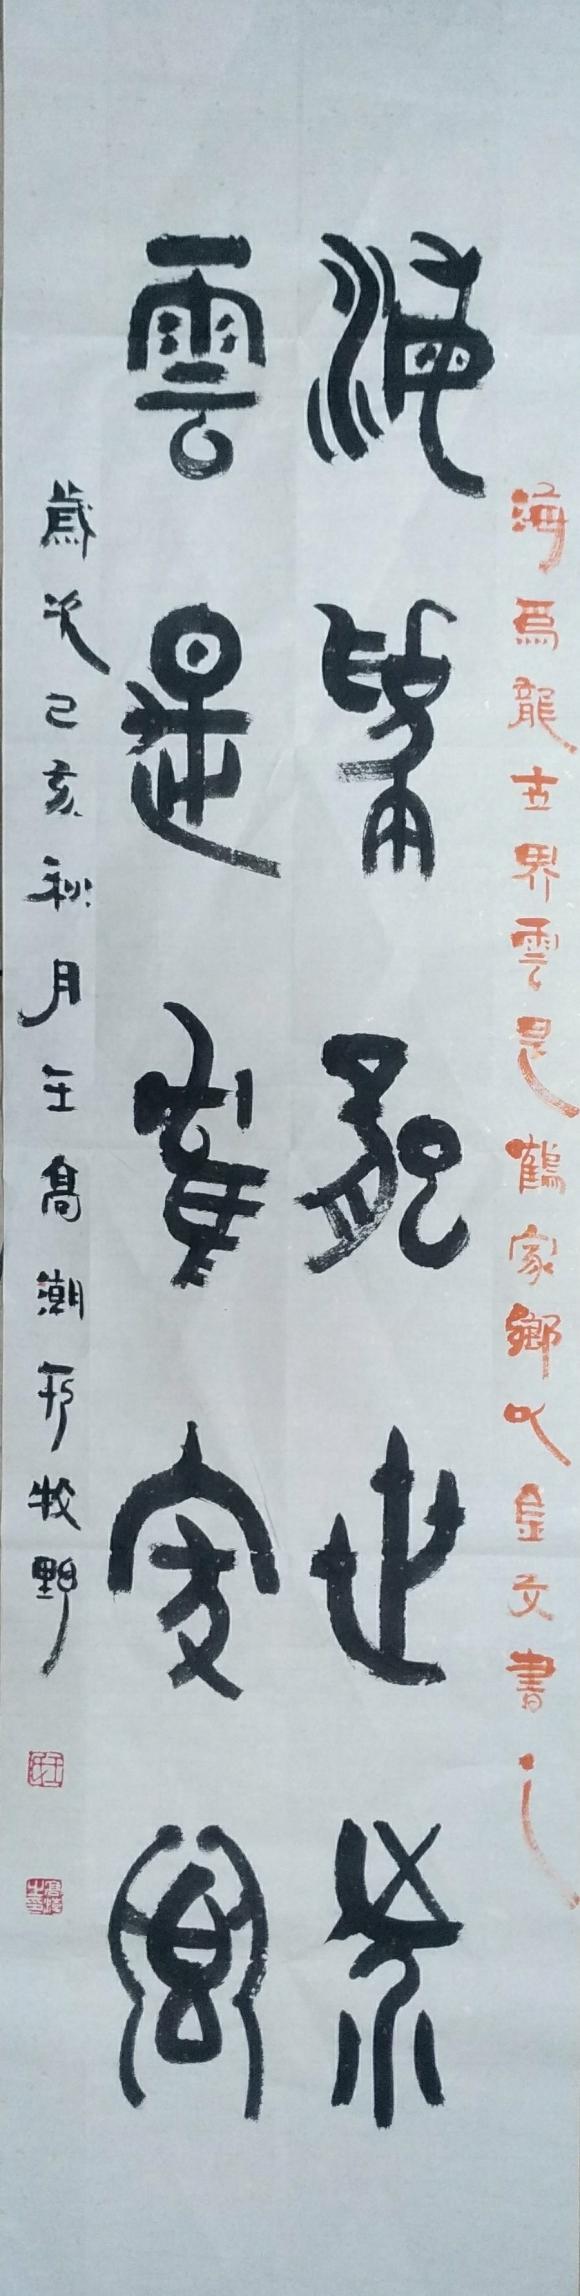 海爲龍世界雲是鶴家鄉以金文書之
海爲龍世界
雲是鶴家鄉
歲次己亥秋月王高潮於牧野